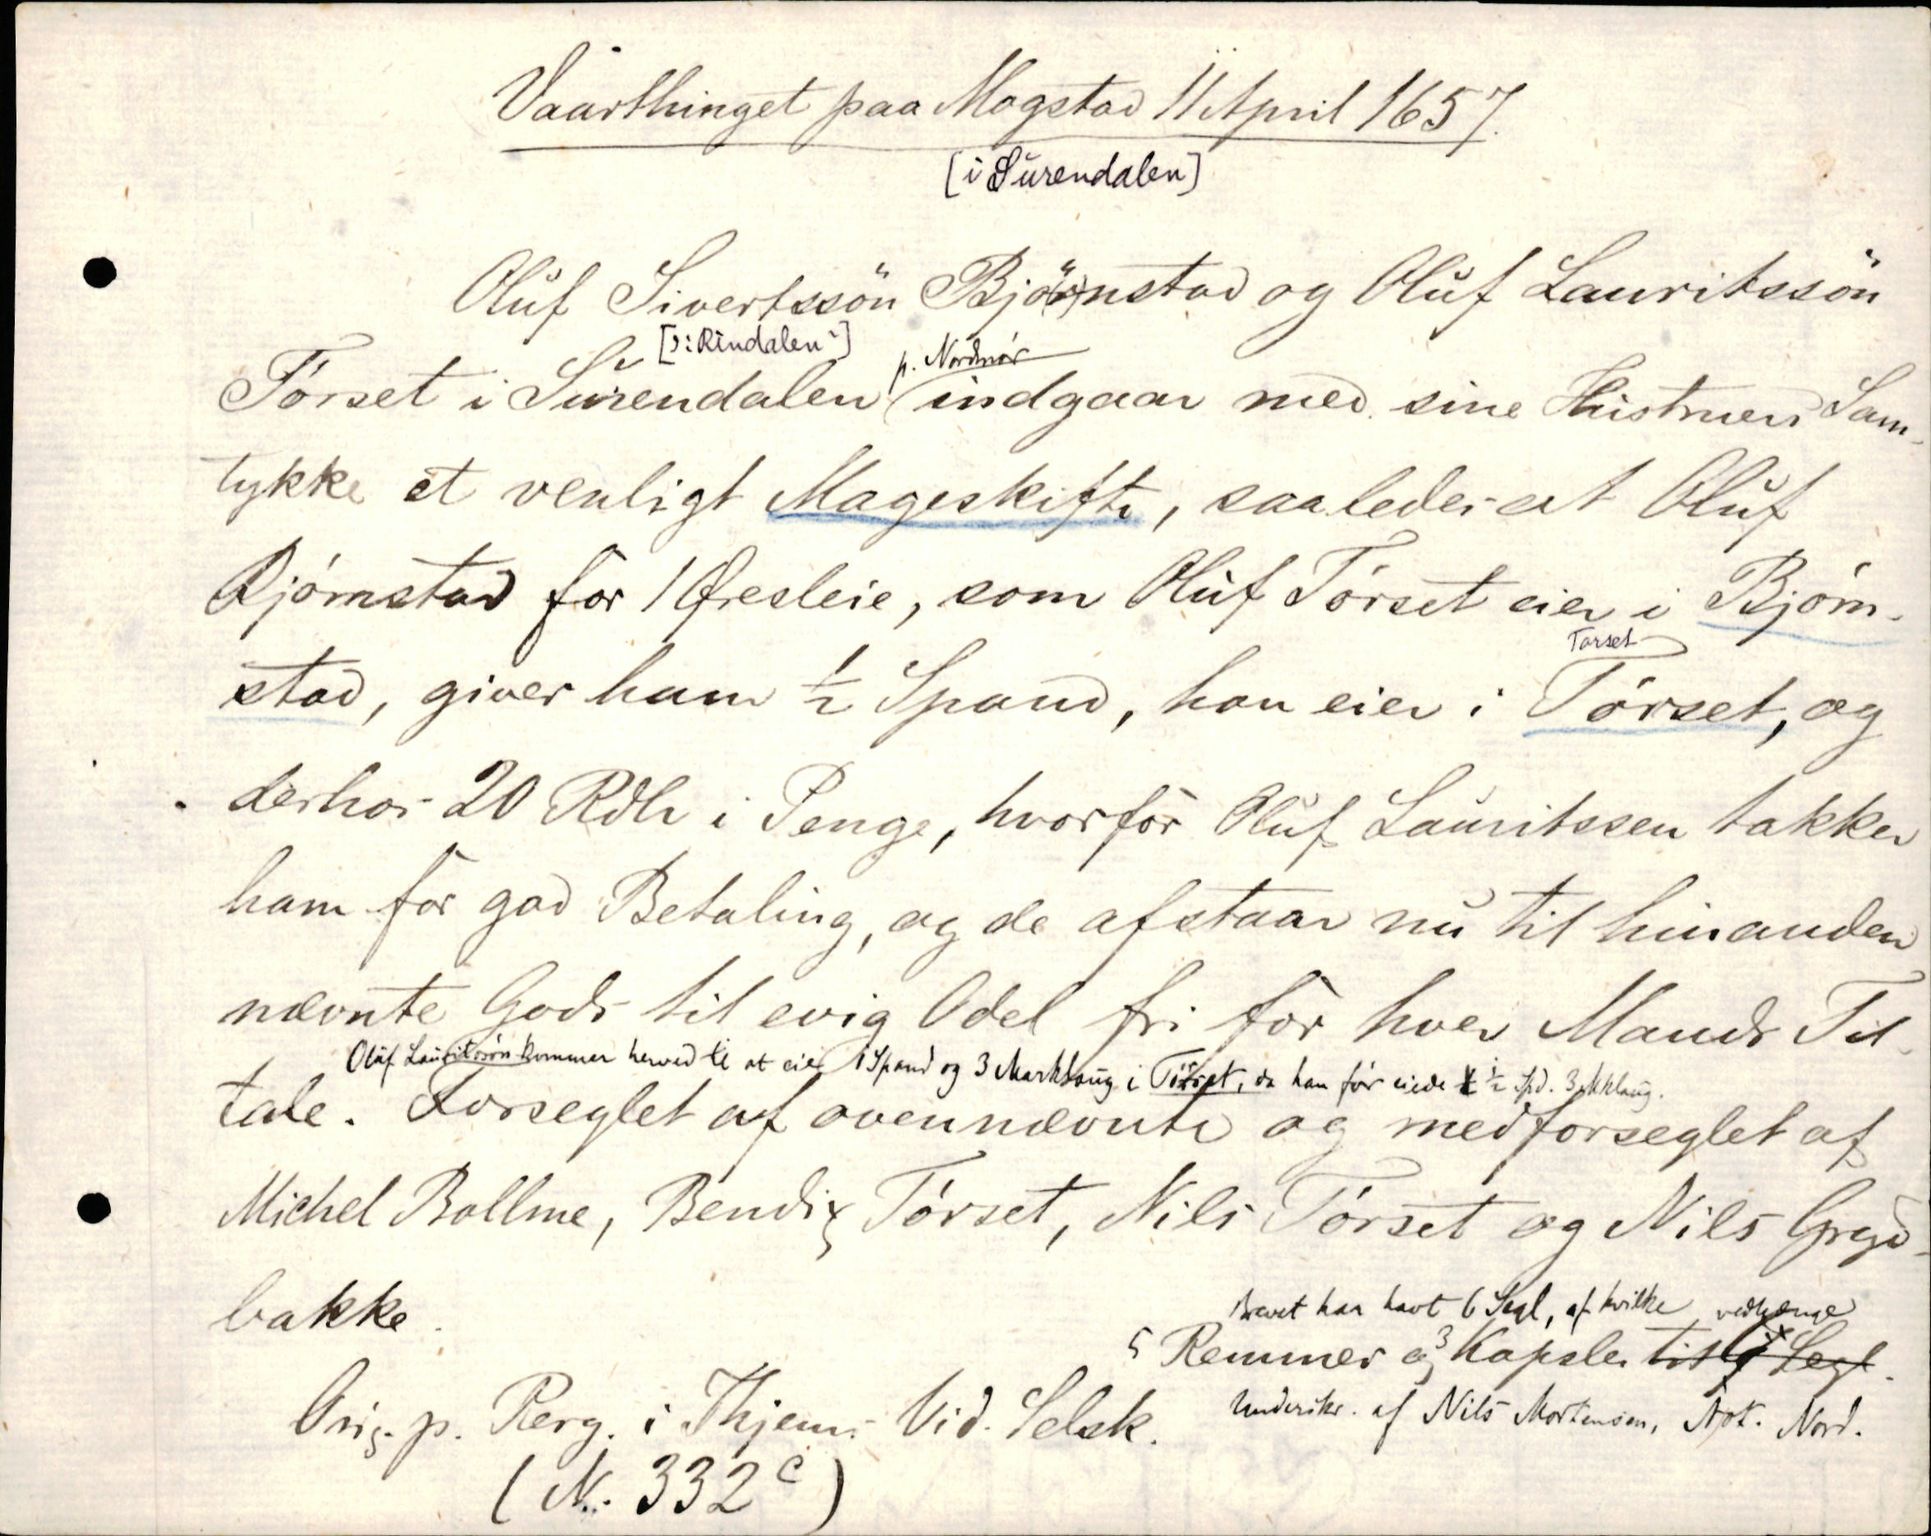 Vaarthinget paa Mogstad 11 April 1657.
[i Surendalen]
Oluf Sivertssön Bjørnstad og Oluf Lauritssön
[ɔ: Rindalen] p. Nordmør
Tórset i Surendalen indgaar med sine Hustruers Sam-
tykke et venligt Mageskifte, saaledes at Oluf
Bjórnstad for 1 Øresleie, som Oluf Tórset eier i Bjórn-
Torset
stad, giver ham ½ Spand, han eier i Tórset, og
derhos 20 Rdlr i Penge, hvorfor Oluf Lauritssen takker
ham for god Betaling, og de afstaar nu til hinanden
nævnte Gods til evig Odel fri for hver Mands Til-
Oluf Lauritssön kommer herved til at eie 1 Spand og 3 Marklaug i Tórset, da han før eiede ½ Spd. 3 Mklaug.
tale. Forseglet af ovennævnte og medforseglet af
Michel Bollme, Bendix Tórset, Nils Tórset og Nils Gryd-
bakke.
Brevet har havt 6 Segl, af hvilke vedhænge
5 Remmer og 3 Kapsler til 6 Segl.
Underskr. af Nils Mortensen, Not. Nord.
Orig. p. Perg. i Thjems Vid. Selsk.
(N. 332 c)